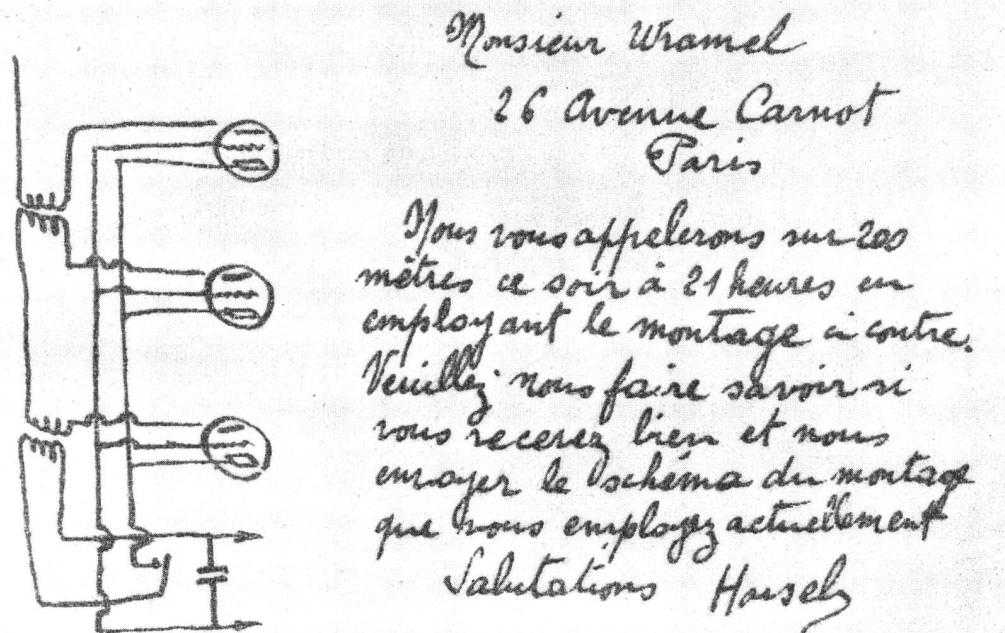 Monsieur Wramel
26 Avenue Carnot
Paris
Nous vous appelerons sur 200
mètres ce soir à 21 heures en
employant le montage ci contre.
Veuillez nous faire savoir si
vous recevez bien et nous
envoyer le schéma du montage
que vous employez actuellement
Salutations